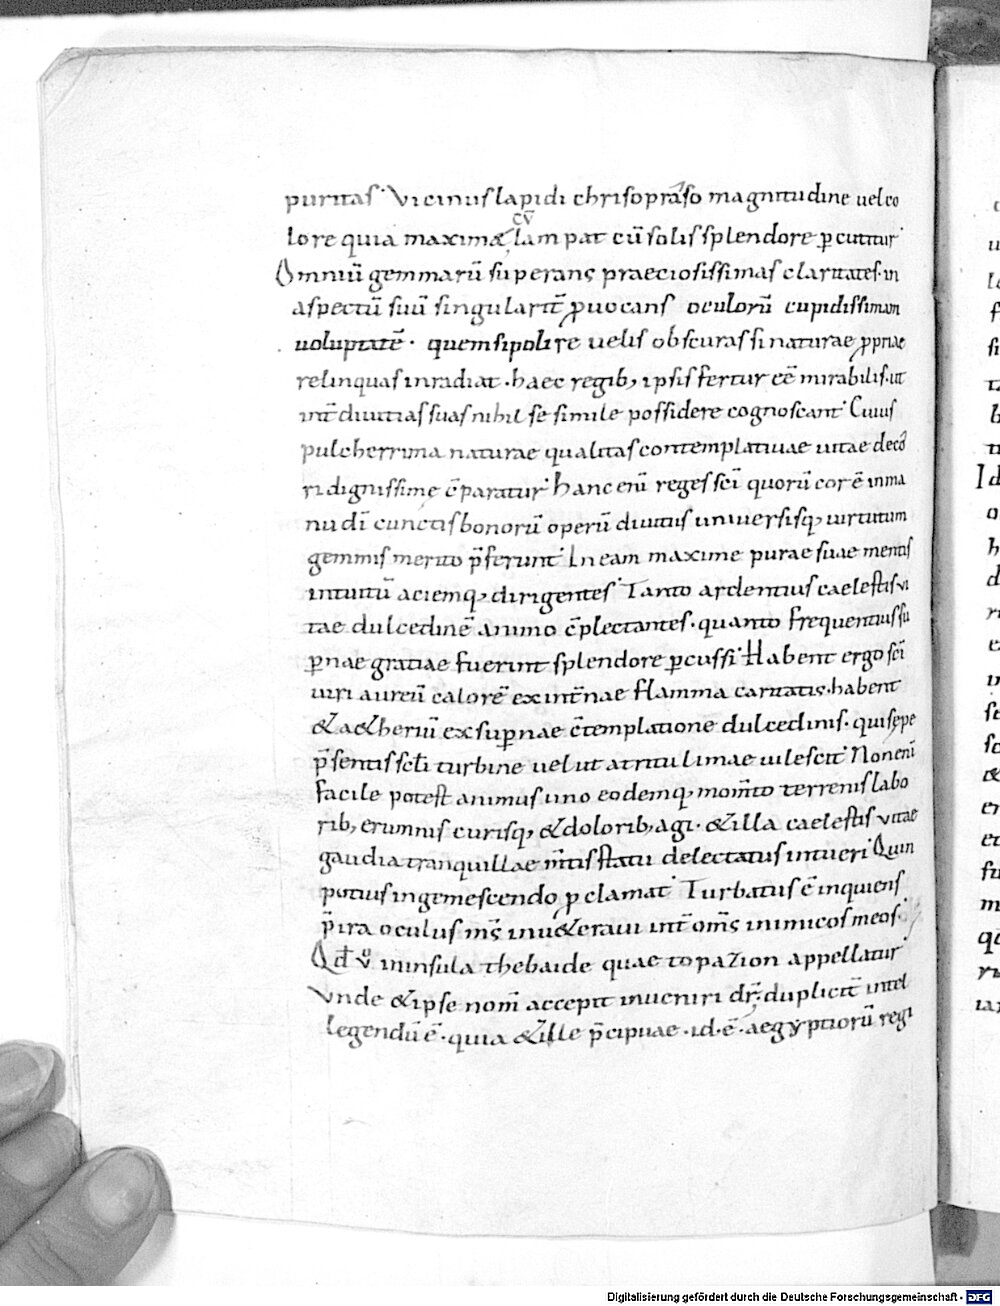 puritas· Vicinus lapidi chrisopraso magnitudine uel co
cū
lore quia maxime & lam pat cū solis splendore ꝑcutitur·
Omniū gemmarū superans praeciosissimas claritates· in
aspectū suū singularit̄ ꝓuocans oculorū cupidissimam
uoluptatē· quem si polire uelis obscuras si naturae ꝓpriae
relinquas inradiat· haec regib; ipsis fertur eē mirabilis· ut
int̄ diuitias suas nihil se simile possidere cognoscant· Cuius
pulcherrima naturae qualitas contemplatiuae uitae deco
ri dignissime c̄paratur· hanc enī reges sc̄i quorū cor ē in ma
nu dī cunctis bonorū operū diuitiis uniuersisq; uirtutum
gemmis merito p̄ferunt· In eam maxime purae suae mentis
intuitū aciemq; dirigentes· Tanto ardentius caelestis ui
tae dulcedinē animo c̄plectantes· quanto frequentius su
ꝑnae gratiae fuerint splendore ꝑcussi· Habent ergo sc̄i
uiri aureū calorē ex int̄nae flamma caritatis· habent
& a&heriū ex suꝑnae c̄templationē dulcedinis· qui sepe
p̄sentis sc̄li turbine uelut atritu limae uilescit· Non enī
facile potest animus uno eodemq; mom̄to terrenis labo
rib; erumnis curisq; & dolorib; agi· & illa caelestis vitae
gaudia tranquillae m̄tis statu delectatus intueri· Quin
potius ingemescendo ꝓclamat· Turbatus ē inquiens
p̄ ira oculus m̄s inu&eraui int̄ om̄s inimicos meos·
Qd̄ v̊ in insula thebaide quae topazion appellatur
Vnde & ipse nom̄ accepit inueniri dr̄· duplicit̄ intel
legendū ē· quia & ille p̄cipuae· id· ē· aegyptiorū regi
Digitalisierung gefördert durch die Deutsche Forschungsgemeinschaft - DFG